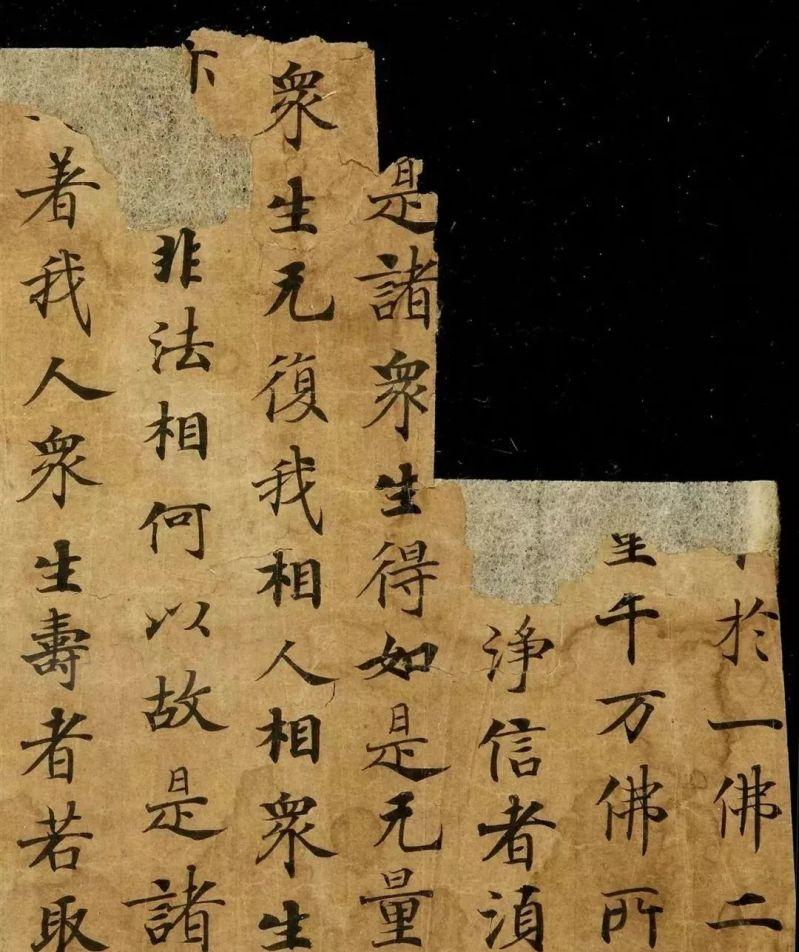 於一佛二
千万佛所
淨信者湏
是諸衆生得如是无量
衆生无復我相人相衆生
非法相何以故是諸
着我人衆生壽者若取